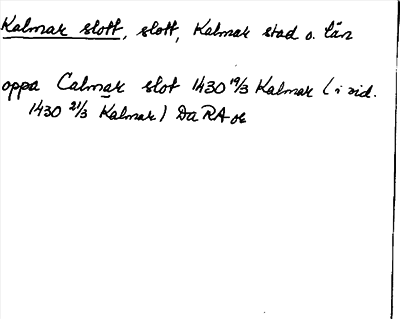 Kalmar slott, slott, Kalmar stad o. län
oppa Calmar slot 1430 19/3 Kalmar (i vid.
1430 21/3 Kalmar) Da RA or